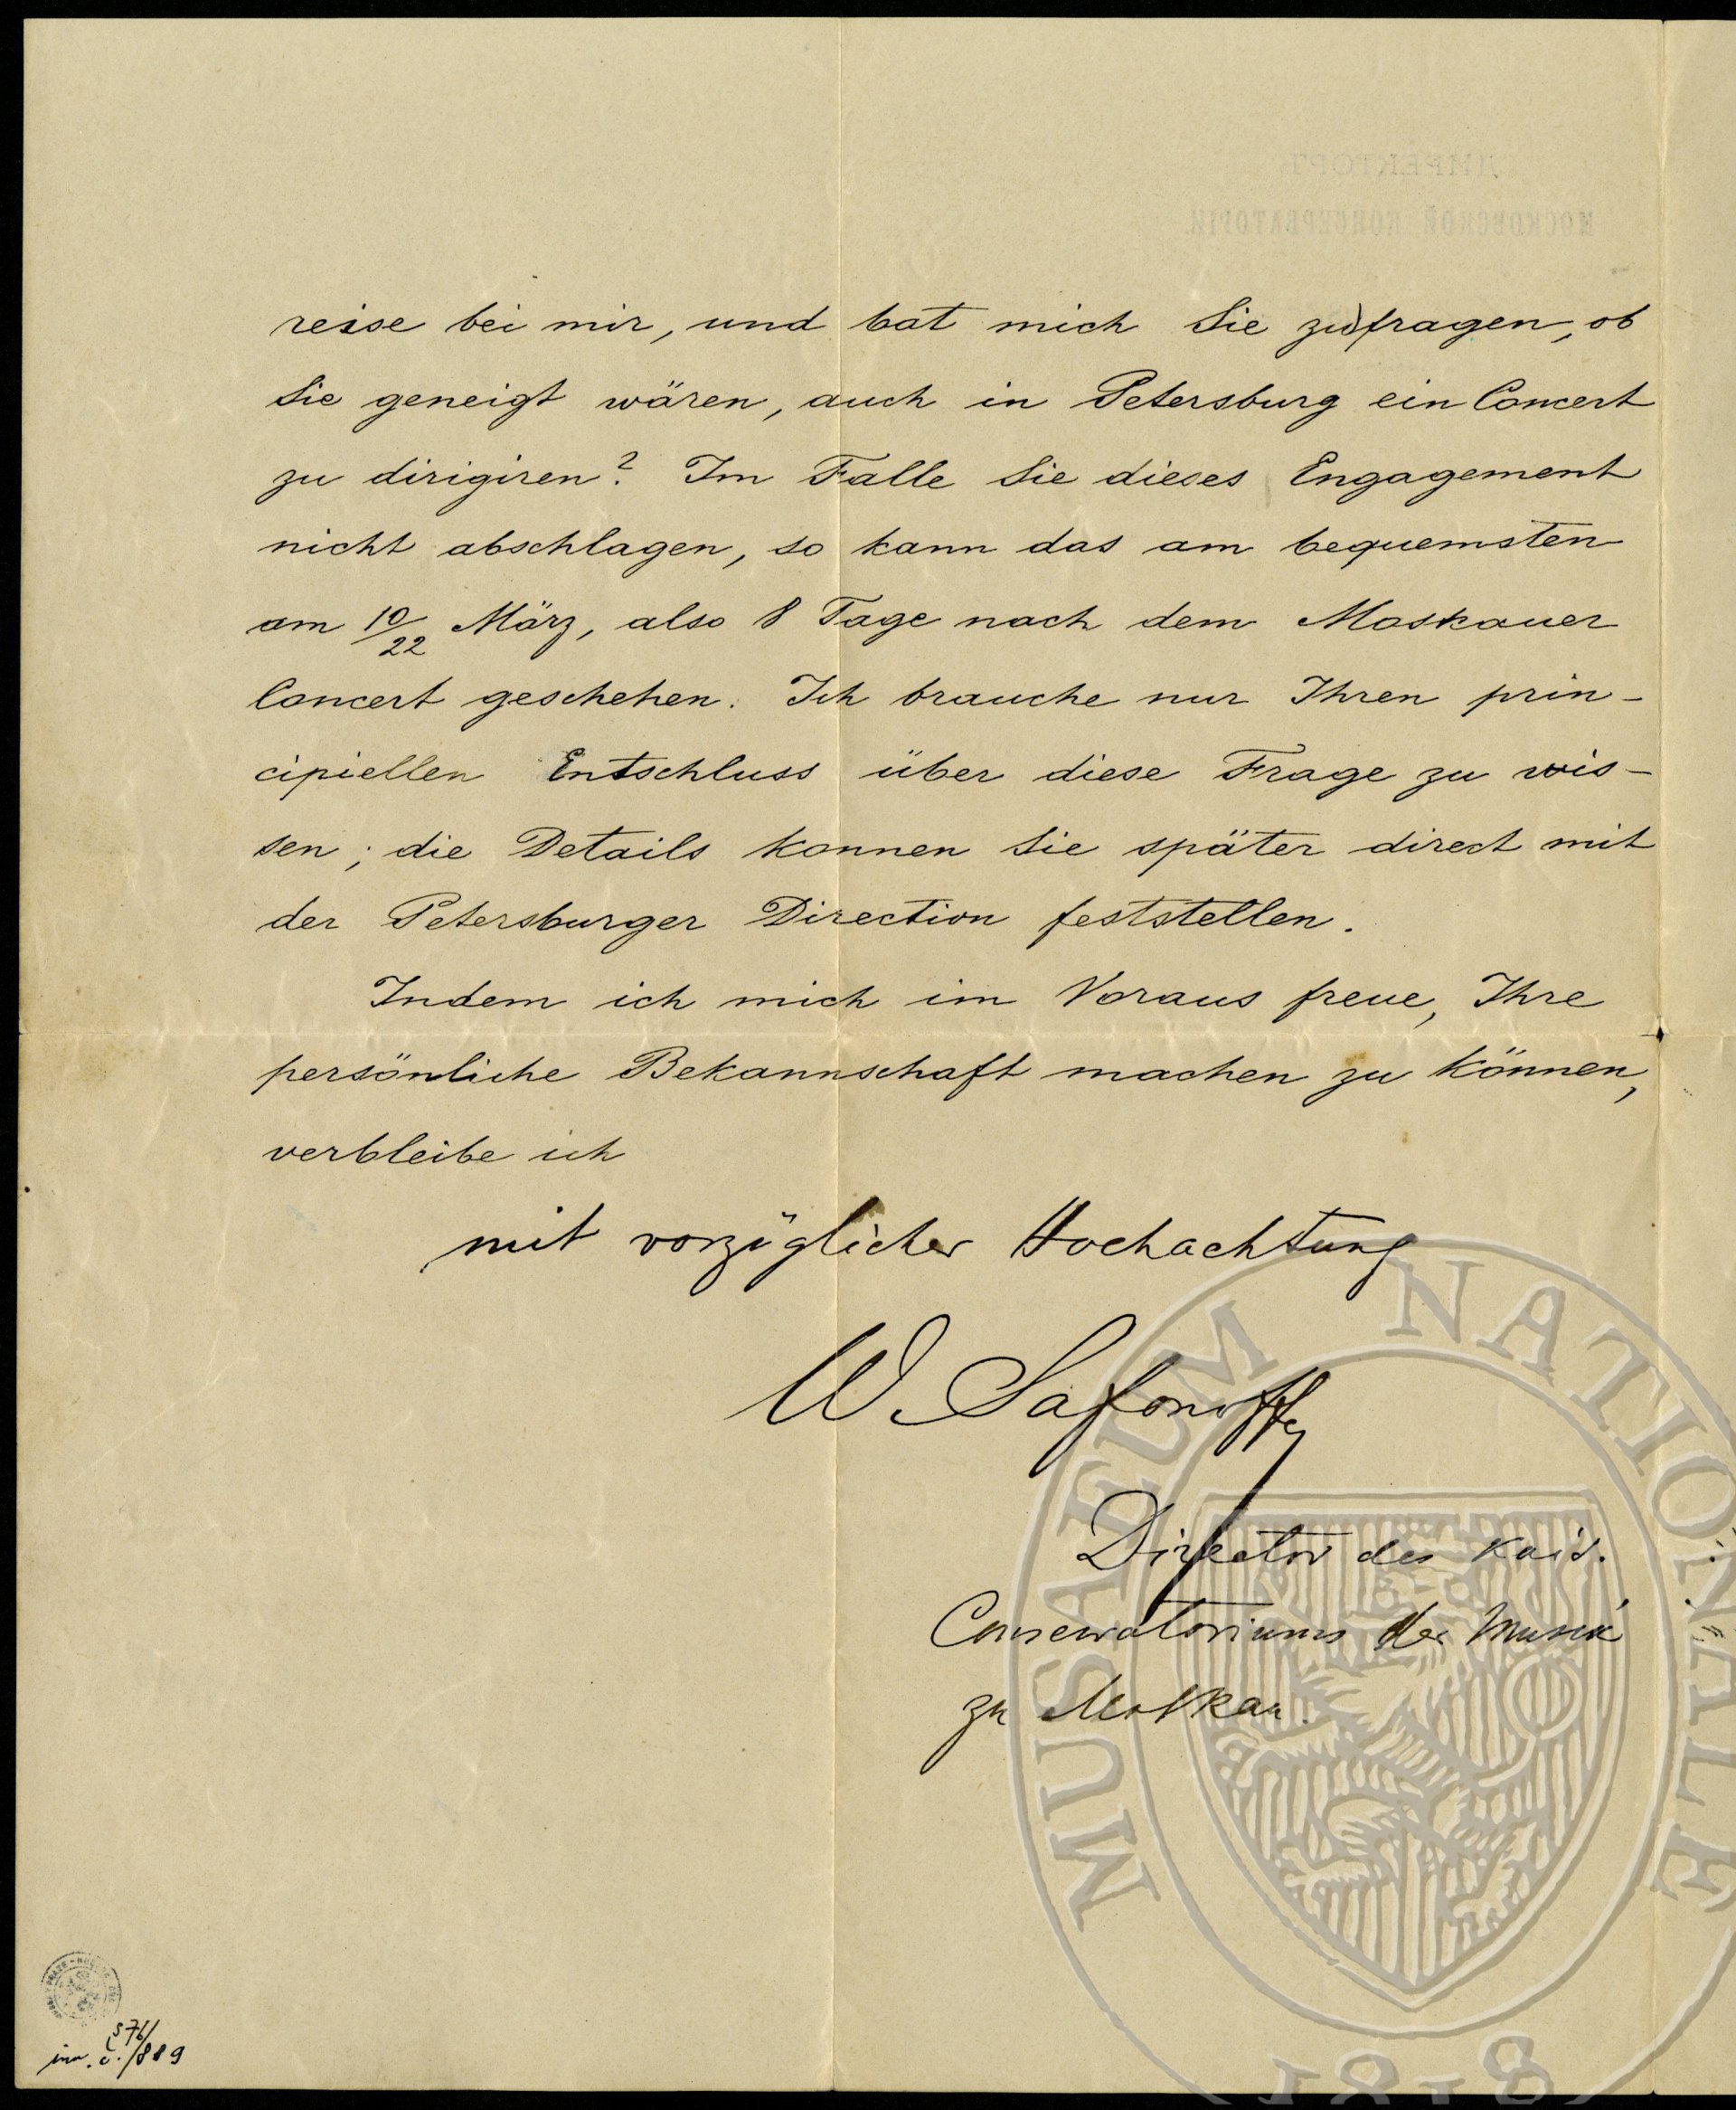 reise bei mir, und bat mich Sie zu fragen, ob
Sie geneigt wären, auch in Petersburg ein Concert
zu dirigiren? Im Falle Sie dieses Engagement
nicht abschlagen, so kann das am bequemsten
am 10/22 März, also 8 Tage nach dem Moskauer
Concert geschehen. Ich brauche nur Ihren prin-
cipiellen Entschluss über diese Frage zu wis-
sen; die Details konnen Sie später direct mit
der Petersburger Direction feststellen.
Indem ich mich im Voraus freue, Ihre
persönliche Bekannschaft machen zu können,
verbleibe ich
mit vorzüglicher Hochachtung
W. Safonoff
Director des Kais.
Conservatoriums der Musik
zu Moskau.
MUSAEUM NATIONALE
1818
inv. č. /889